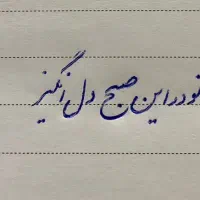 تو در این صبح دل انگیز